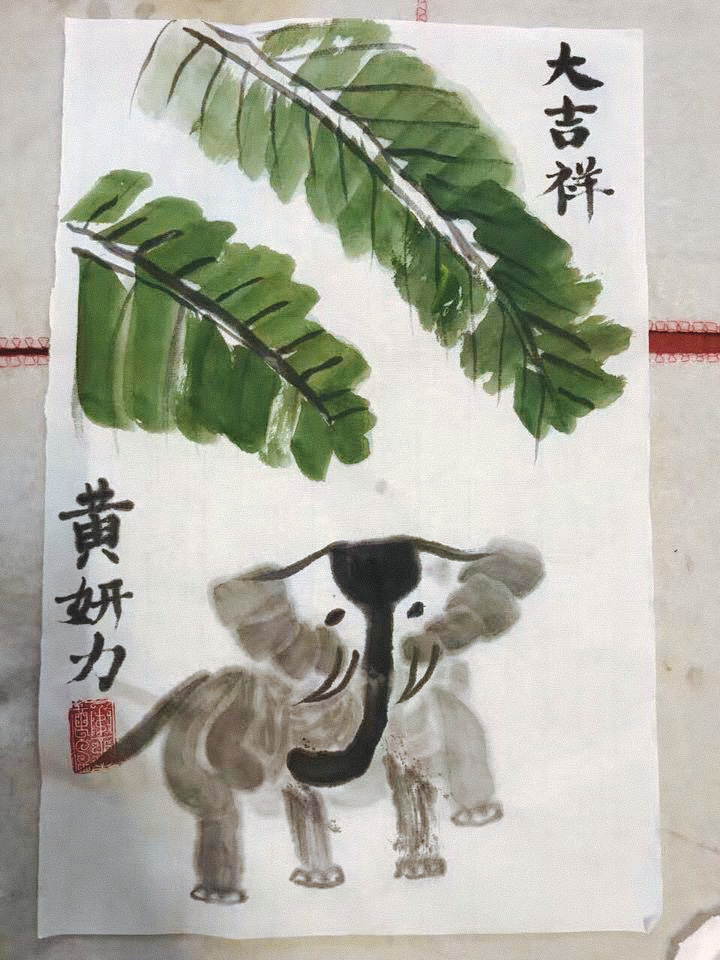 大吉祥
黄妍力